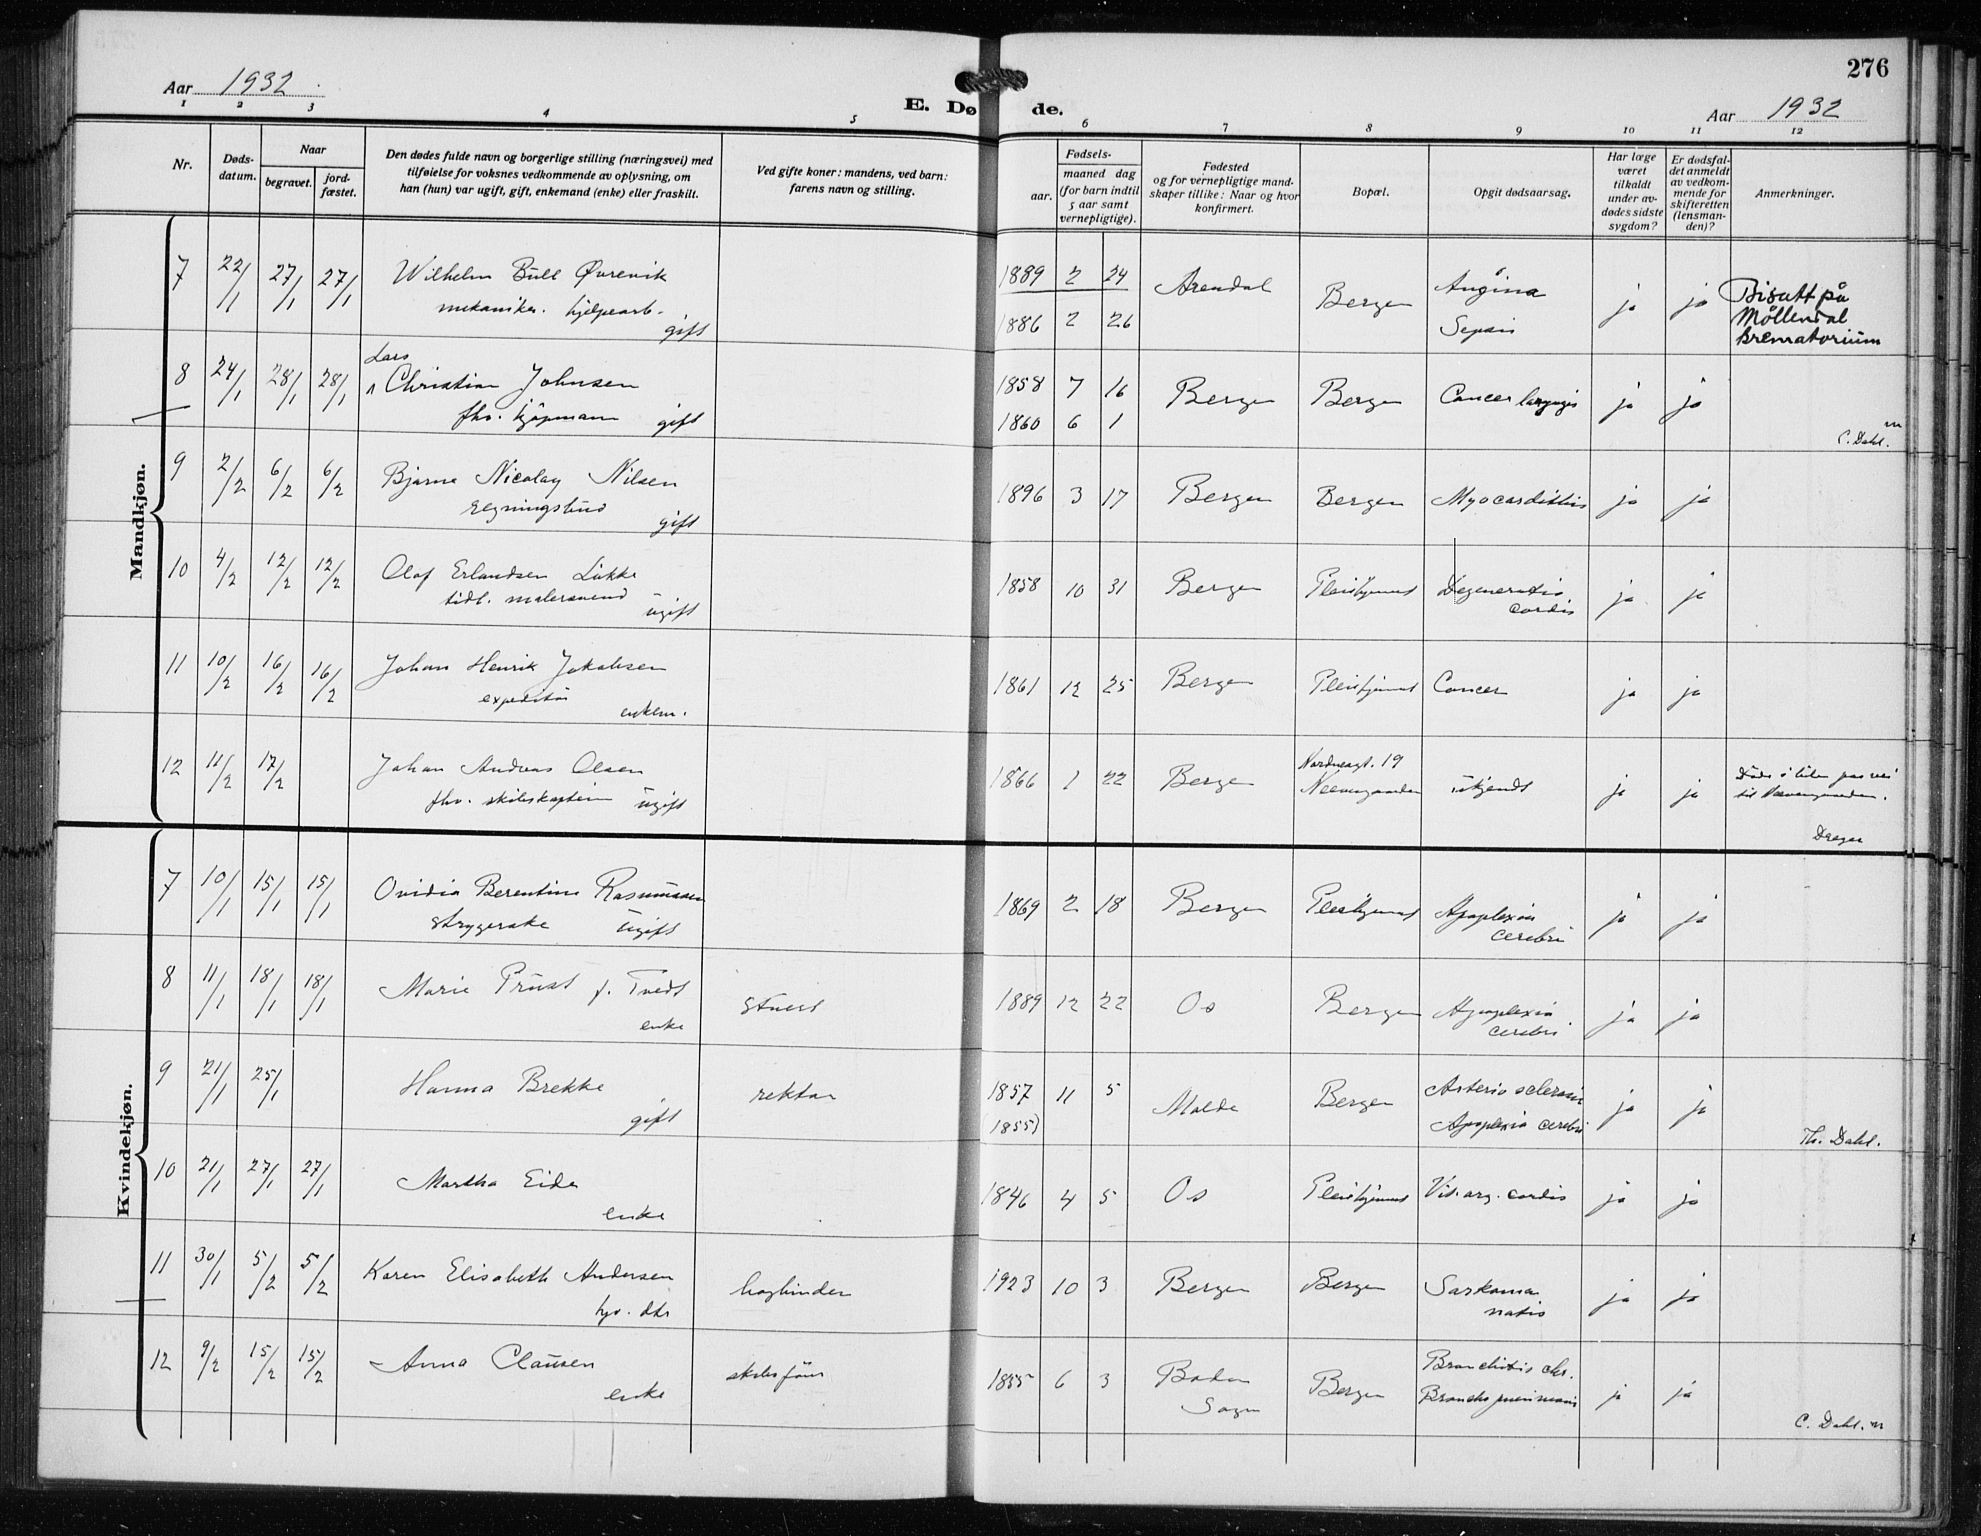 276
Aar 1932
E. Døde.
Aar 1932
1 2 3 4 5 6 7 8 9 10 11 12
Nr.
Døds-
datum.
Naar
begravet.
jord-
fæstet.
Den dødes fulde navn og borgerlige stilling (næringsvei) med
tilføielse for voksnes vedkommende av oplysning, om
han (hun) var ugift, gift, enkemand (enke) eller fraskilt.
Ved gifte koner: mandens, ved barn:
farens navn og stilling.
Fødsels-
aar.
maaned dag
(for barn indtil
5 aar samt
vernepligtige).
Fødested
og for vernepligtige mand-
skaper tillike: Naar og hvor
konfirmert.
Bopæl.
Opgit dødsaarsag.
Har læge
været
tilkaldt
under av-
dødes sidste
sygdom?
Er dødsfal-
det anmeldt
av vedkom-
mende for
skifteretten
(lensman-
den)?
Anmerkninger.
Mandkjøn.
7 22/1 27/1 27/1 Wilhelm Bull Øvrevik
mekaniker. hjelpearb.
gift
1889 2 24 Arendal Bergen Angina ja ja
1886 2 26
Bisatt på
Møllendal
krematorium
8 24/1 28/1 28/1 Lars
Christian Johnsen
fhv. kjøpmann gift
1858 7 16 Bergen Bergen Cancer laryngis ja ja
1860 6 1
C. Dahl.
9 2/2 6/2 6/2 Bjarne Nicolay Nilsen
gift
1896 3 17 Bergen Bergen ja ja
10 4/2 12/2 12/2 Olaf Erlandsen Lükke
tidl. malersvend
ugift
1858 10 31 Bergen Pleiehjemmet
cordis ja ja
11 10/2 16/2 16/2 Johan Henrik Jakobsen
expeditør
enkem.
1861 12 25 Bergen Pleiehjemmet Cancer ja ja
12 11/2 17/2 Johan Andreas Olsen
fhv. skibskaptein ugift
1866 1 22 Bergen 19 ukjendt ja ja
Kvindekjøn.
7 10/1 15/1 15/1 Ovidia Berentine Rasmussen
strygerske ugift
1869 2 18 Bergen Pleiehjemmet Apoplexia
cerebri ja ja
8 11/1 18/1 18/1 Marie Prüst f. Tvedt
enke
stuert
1889 12 22 Os Bergen Apoplexia
cerebri ja ja
9 21/1 25/1 Hanna Brekke
gift
rektor
1857 11 5 Molde Bergen
(1855) Apoplexia cerebri ja ja
Th. Dahl.
10 21/1 27/1 27/1 Martha Eide
enke
1846 4 5 Os Pleiehjemmet Vit. org. cordis ja ja
11 30/1 5/2 5/2 Karen Elisabeth Andersen
hjv. dtr
bogbinder
1923 10 3 Bergen Bergen Sarkoma
natis ja ja
12 9/2 15/2 15/2 Anna Clausen
enke
skibsfører
1855 6 3 Bergen Bronchitis chr.
Sogn ja ja
C. Dahl.